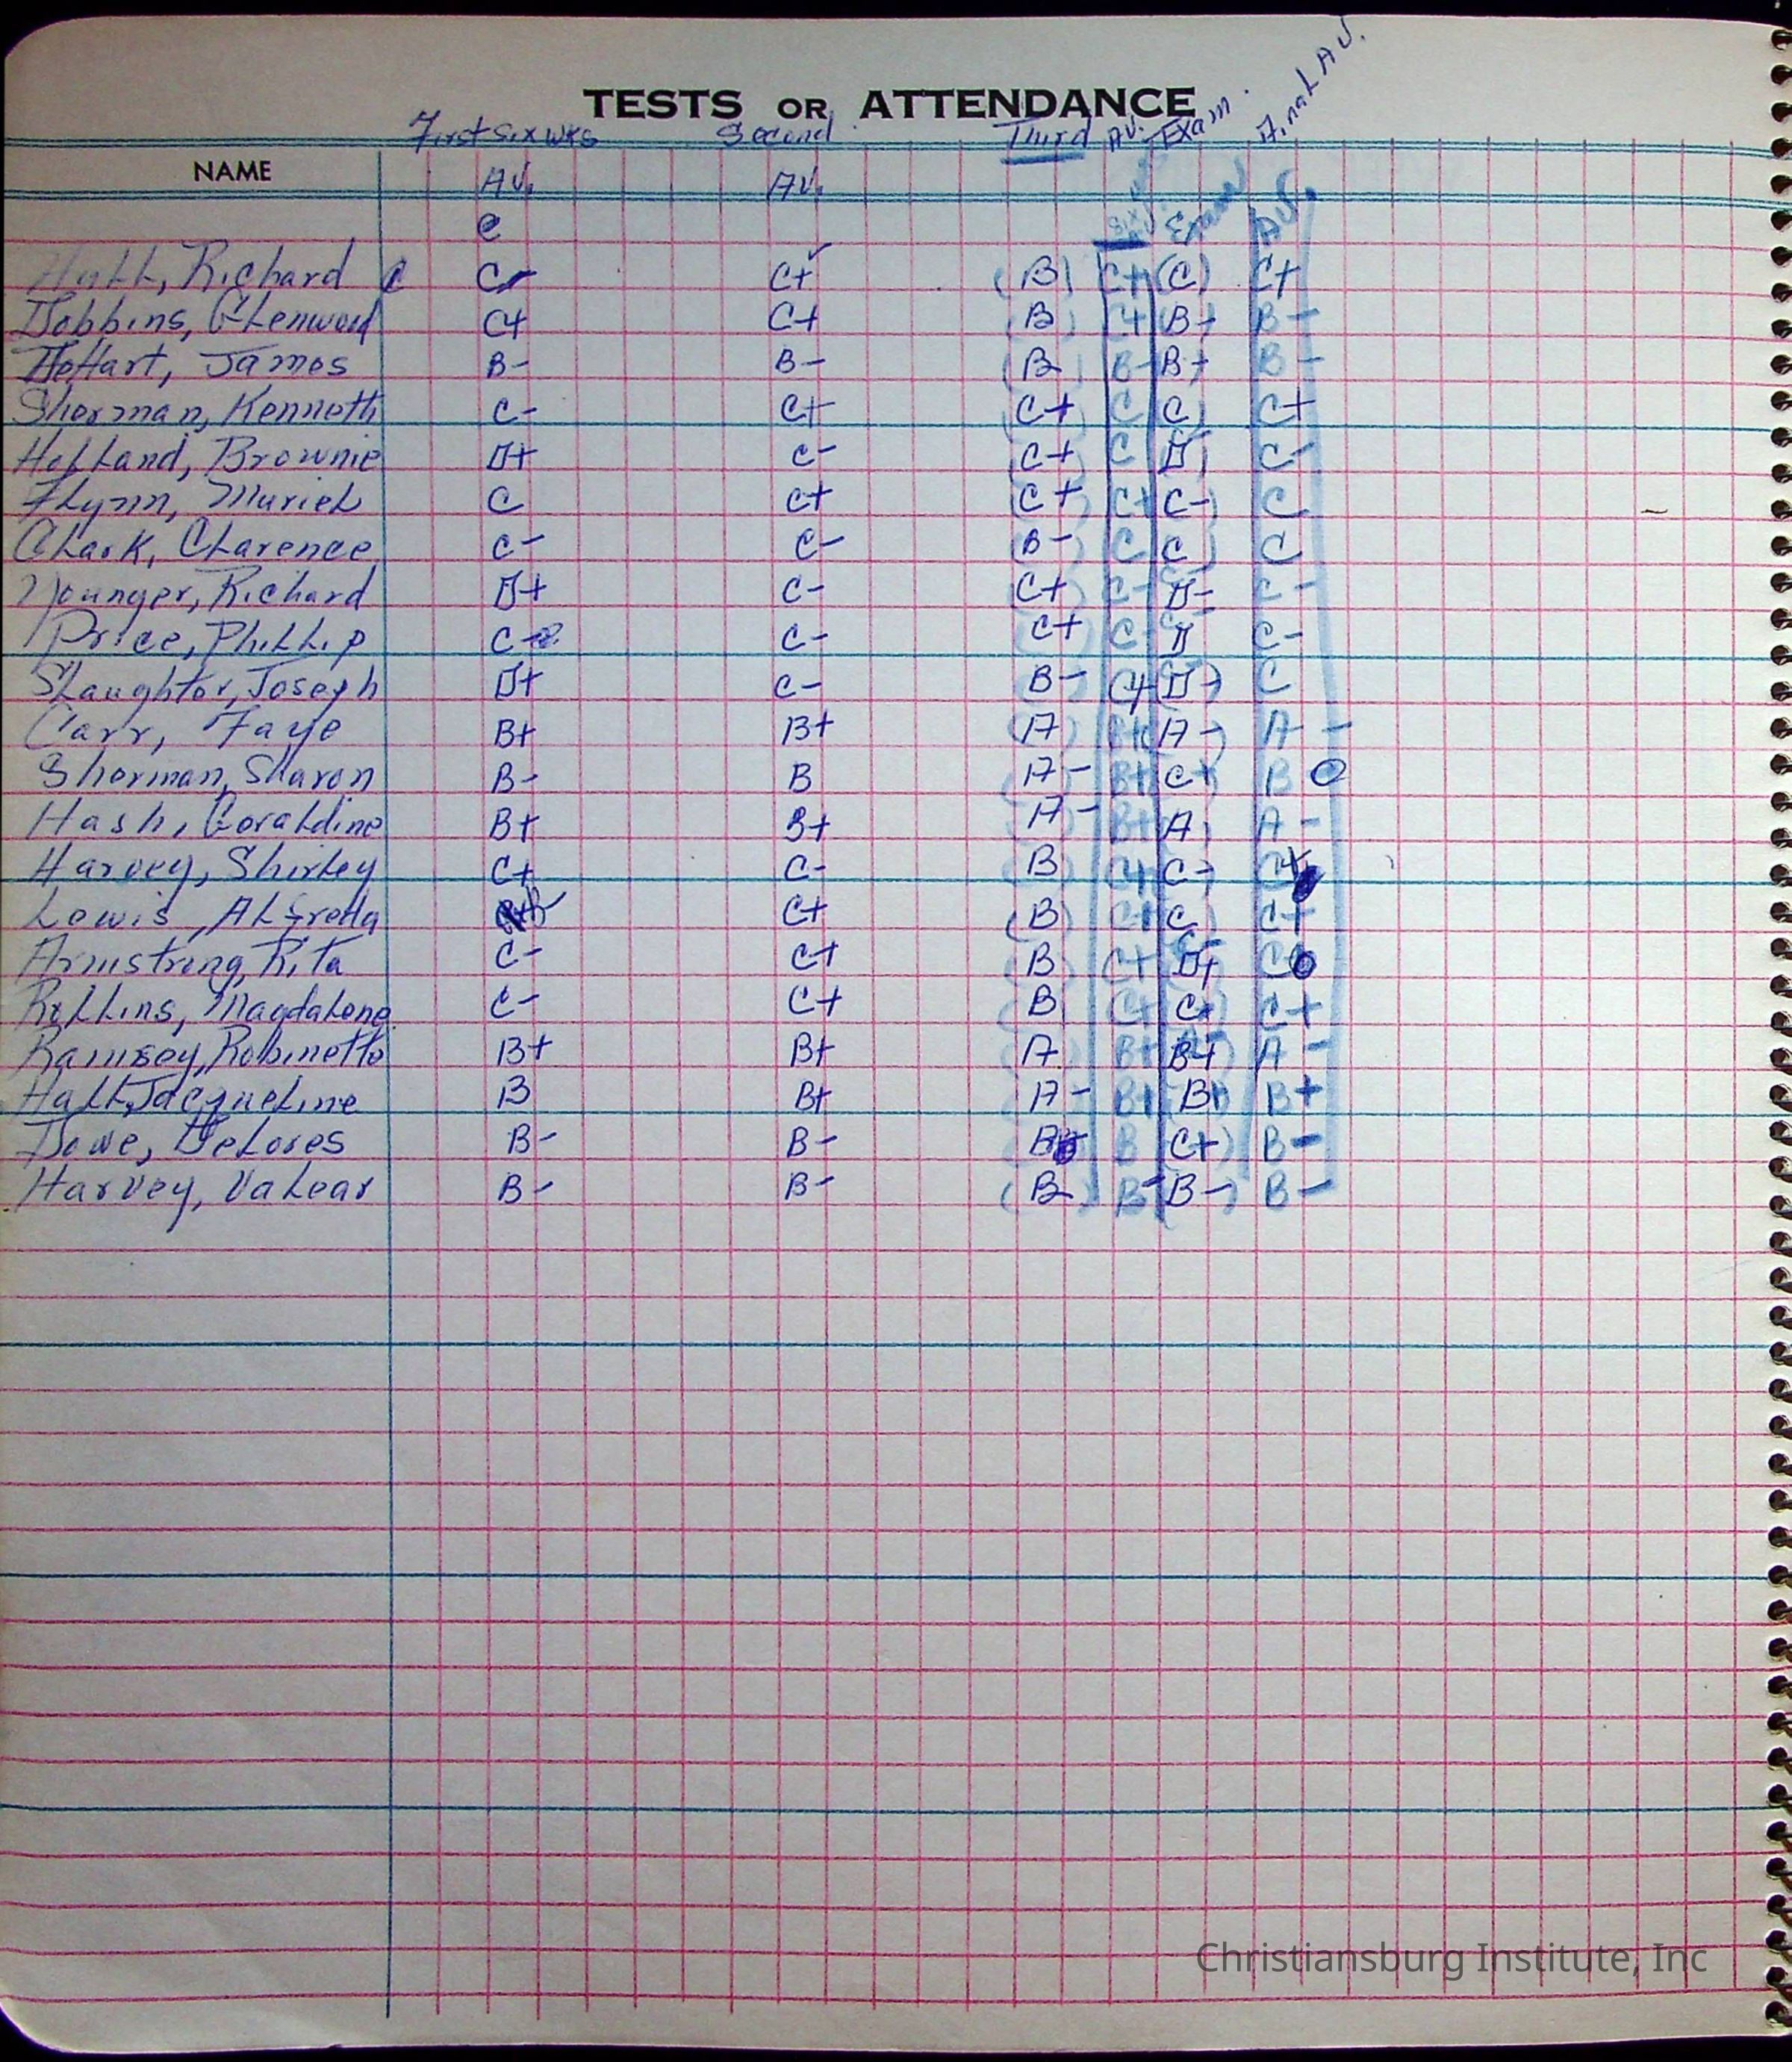 TESTS OR ATTENDANCE
First six wks Second Third Av. Exam. Final AV.
NAME AV. AV. Six Exam AV.
C
Richard C C- C+ (B) C+ (C) C+
Dobbins, Glenwood C+ C+ (B) C+ (B+) B-
DeHart, James B- B- (B) B- B+ B-
Sherman, Kenneth C- C+ C+ C C C+
Holland, Brownie D+ C- C+ C D C-
Flynn, Muriel C C+ C+ C+ C-) C
Clark, Clarence C- C- (B-) C C) C
Younger, Richard D+ C- C+ C- D- C-
Price, Phillip C- C- C+ C- D C-
Slaughter, Joseph D+ C- B- C+ D+) C
Carr, Faye B+ B+ (A) B+ A-) A-
Sherman, Sharon B- B A- B+ C+ B
Hash, Goraldine B+ B+ A- B+ A A-
Harvey, Shirley C+ C- B C+ C-) C+
Lewis, Alfreda C+ (B) C+ C C+
Armstrong, Rita C- C+ B C+ D+ C
Rollins, Magdalene C- C+ B C+ C+ C+
Ramsey, Robinette B+ B+ A B+ B+ A-
Hall, Jacqueline B B+ A- B+ B+ B+
Dowe, Delores B- B- B B C+) B-
Harvey, Valear B- B- (B) B- B-) B-
Christiansburg Institute, Inc